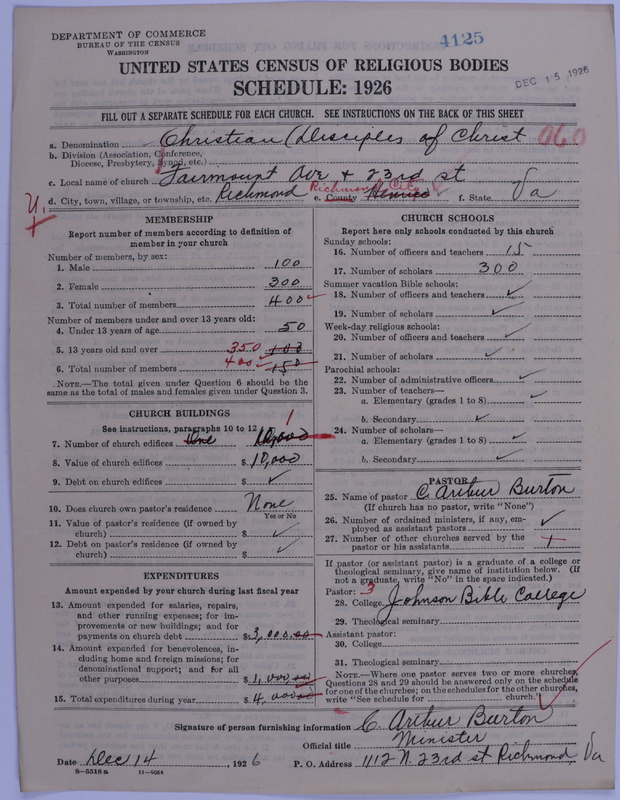 DEPARTMENT OF COMMERCE
BUREAU OF THE CENSUS
WASHINGTON
4125
UNITED STATES CENSUS OF RELIGIOUS BODIES
SCHEDULE: 1926
DEC 15 1926
FILL OUT A SEPARATE SCHEDULE FOR EACH CHURCH. SEE INSTRUCTIONS ON THE BACK OF THIS SHEET
a. Denomination Christian (Disciples of Christ 060
b. Division (Association, Conference, Diocese, Presbytery, Synod, etc.)
c. Local name of church Fairmount Ave + 23rd st
d. City, town, village, or township, etc. Richmond e. County Henrico Richmond City f. State Va
MEMBERSHIP
Report number of members according to definition of
member in your church
Number of members, by sex:
1. Male 100
2. Female 300
3. Total number of members 400
Number of members under and over 13 years old:
4. Under 13 years of age 50
5. 13 years old and over 350 100
6. Total number of members 400 150
NOTE.—The total given under Question 6 should be the
same as the total of males and females given under Question 3.
CHURCH BUILDINGS
See instructions, paragraphs 10 to 12
7. Number of church edifices One 10,000 1
8. Value of church edifices $ 10,000
9. Debt on church edifices $ ✓
10. Does church own pastor's residence None
Yes or No
11. Value of pastor's residence (if owned by
church) $ ✓
12. Debt on pastor's residence (if owned by
church) $ ✓
EXPENDITURES
Amount expended by your church during last fiscal year
13. Amount expended for salaries, repairs,
and other running expenses; for im-
provements or new buildings; and for
payments on church debt $ 3,000.00
14. Amount expended for benevolences, in-
cluding home and foreign missions; for
denominational support; and for all
other purposes $ 1,000.00
15. Total expenditures during year $ 4,000.00
CHURCH SCHOOLS
Report here only schools conducted by this church
Sunday schools:
16. Number of officers and teachers 15
17. Number of scholars 300
Summer vacation Bible schools:
18. Number of officers and teachers ✓
19. Number of scholars ✓
Week-day religious schools:
20. Number of officers and teachers ✓
21. Number of scholars ✓
Parochial schools:
22. Number of administrative officers ✓
23. Number of teachers—
a. Elementary (grades 1 to 8) ✓
b. Secondary ✓
24. Number of scholars—
a. Elementary (grades 1 to 8) ✓
b. Secondary ✓
PASTOR
25. Name of pastor C. Arthur Burton
(If church has no pastor, write "None")
26. Number of ordained ministers, if any, em-
ployed as assistant pastors ✓
27. Number of other churches served by the
pastor or his assistants +
If pastor (or assistant pastor) is a graduate of a college or
theological seminary, give name of institution below. (If
not a graduate, write "No" in the space indicated.)
Pastor: 3
28. College Johnson Bible College
29. Theological seminary
Assistant pastor:
30. College
31. Theological seminary
NOTE.—Where one pastor serves two or more churches,
Questions 28 and 29 should be answered only on the schedule
for one of the churches; on the schedules for the other churches,
write "See schedule for church."
Signature of person furnishing information C. Arthur Burton
Official title Minister
Date Dec 14, 1926 P. O. Address 1112 N 23rd st Richmond, Va
8—5518 a 11—9054